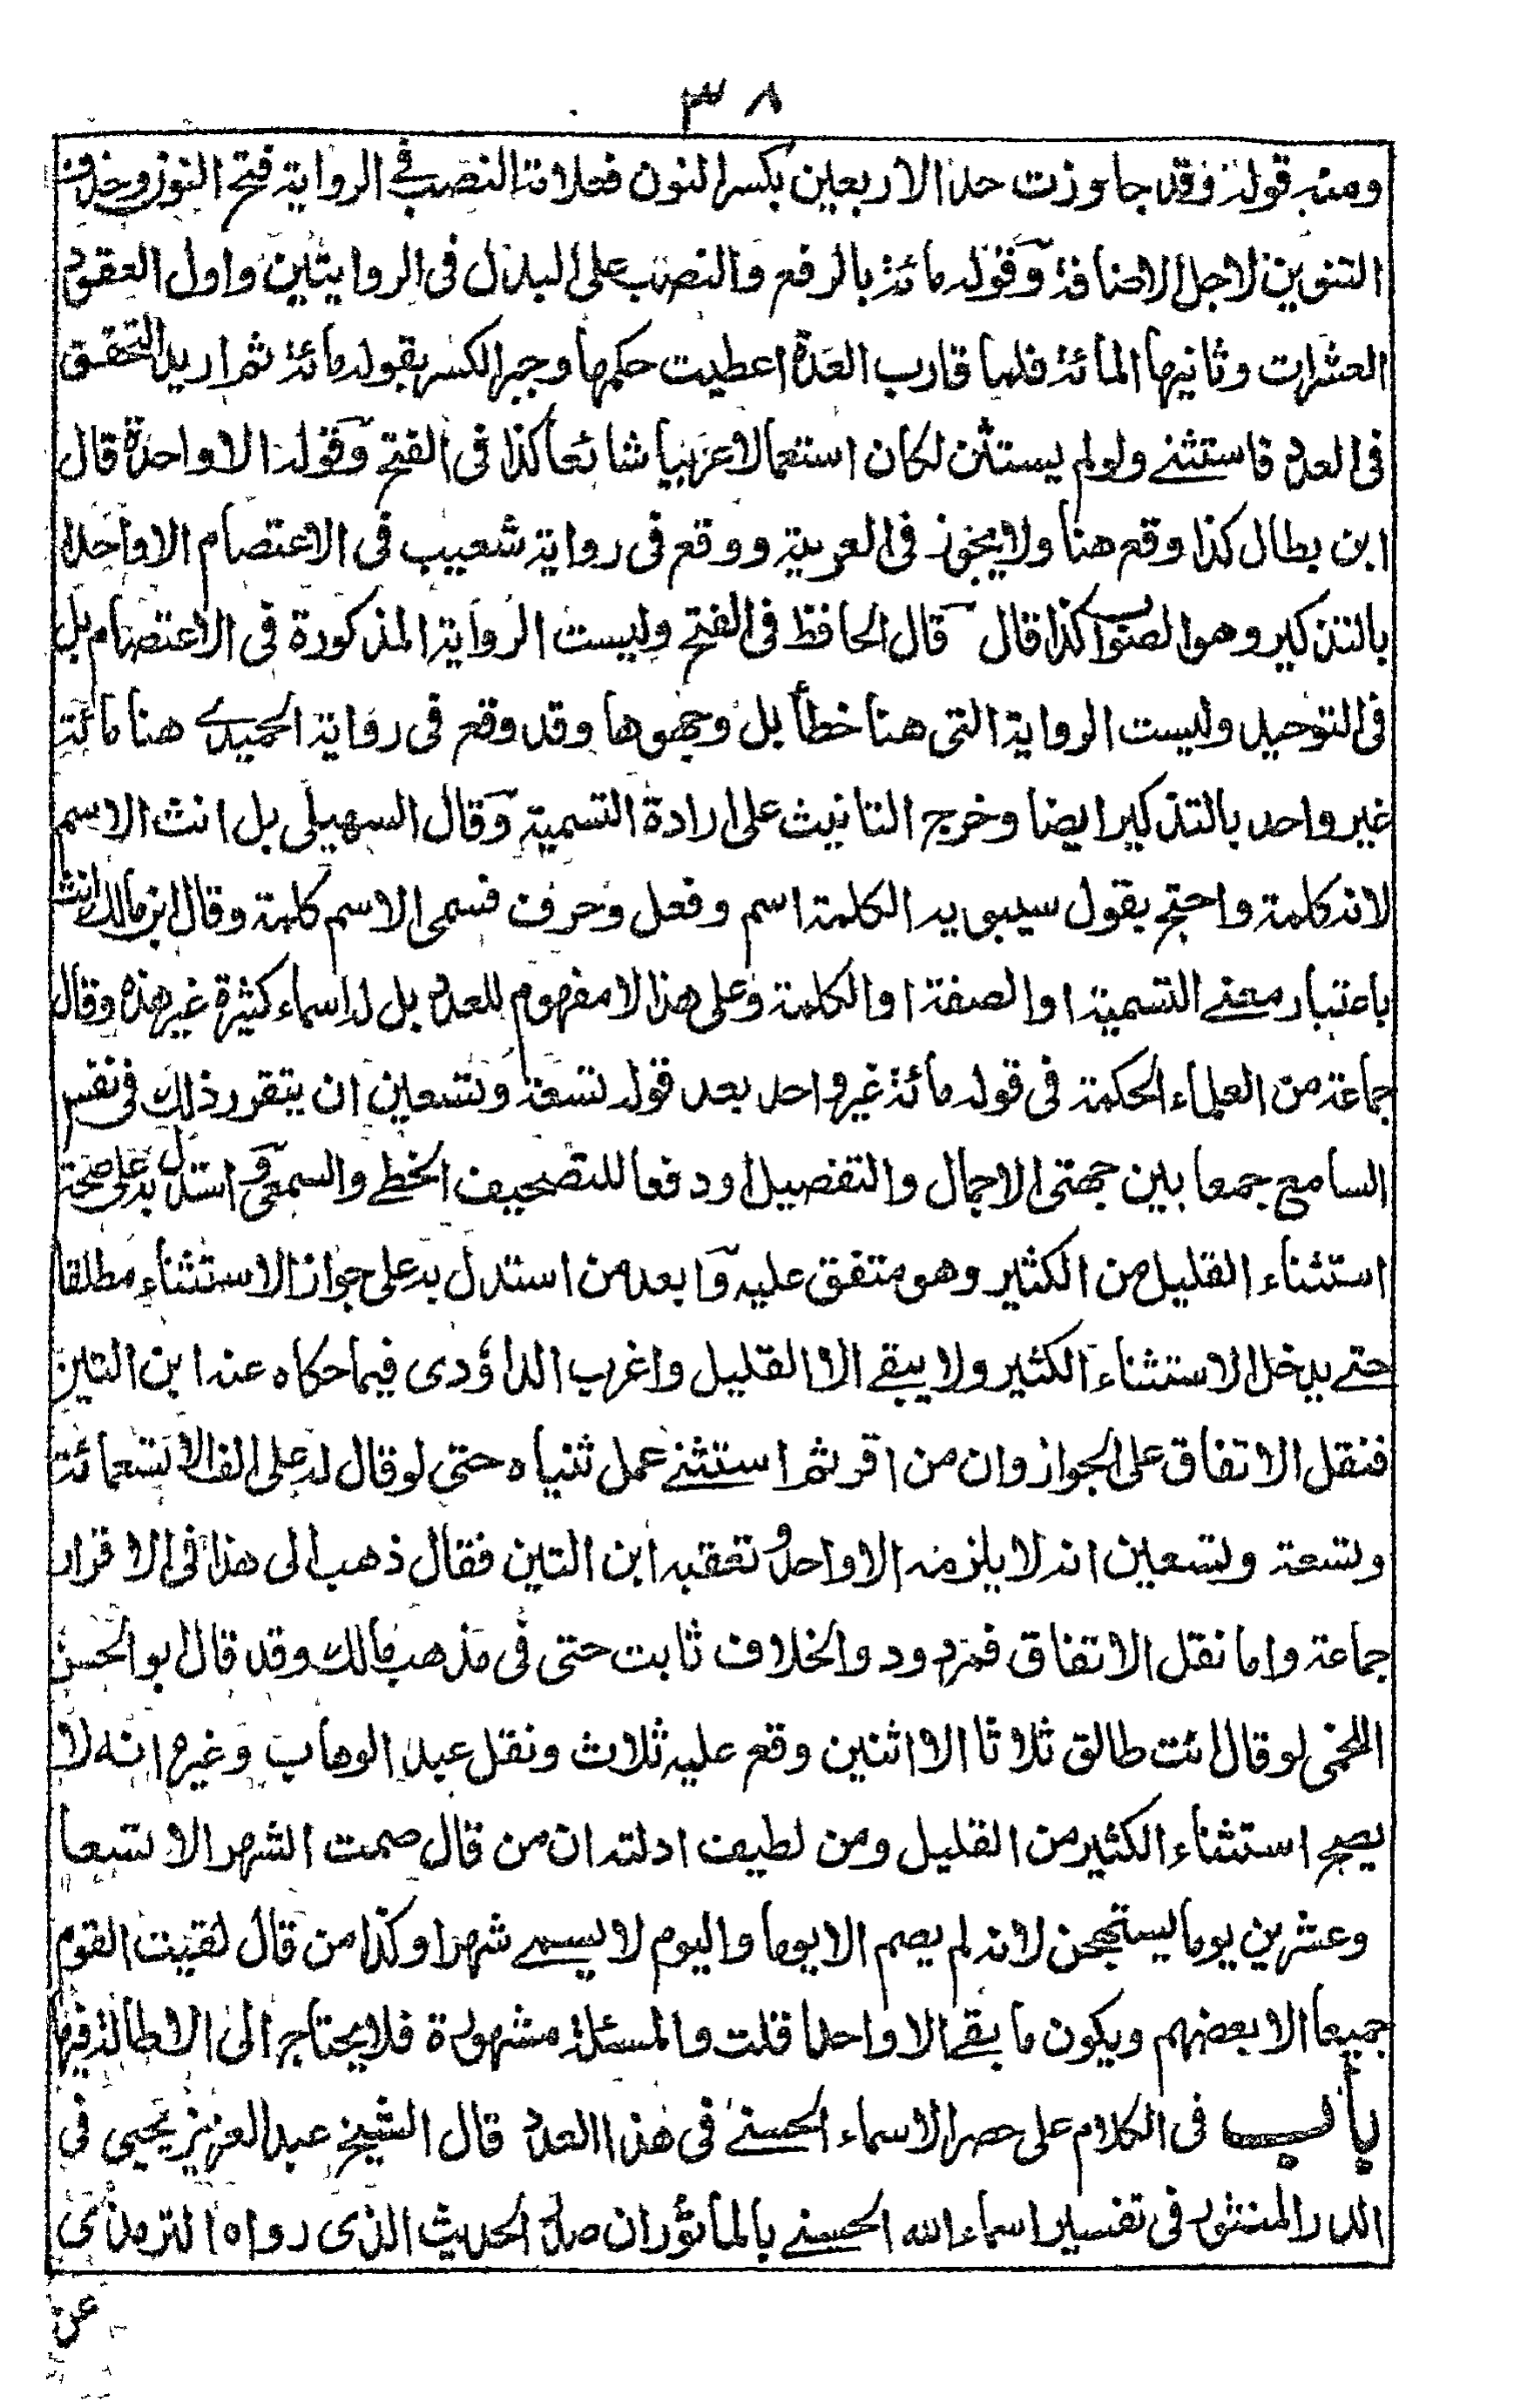 ٣٨
ومنه قوله وقد جاوزت حد الاربعين بكسر النون فعلامة النصب فى الرواية فتح النون وحذف
التنوين لاجل الاضافة وقوله مائة بالرفع والنصب على البدل فى الروايتين واول العقود
العشرات وثانيها المائة فلما قارب العدة اعطيت حكمها وجبر الكسر بقوله مائة ثم اريد التحقق
فى العدد فاستثنے ولولم يستثن لكان استعمالا عربيا شائعا كذا فى الفتح وقوله الا واحدة قال
ابن بطال كذا وقع هنا ولا يجوز فى العربية ووقع فى رواية شعيب فى الاعتصام الا واحدا
بالتذكير وهو الصواب كذا قال قال الحافظ فى الفتح وليست الرواية المذكورة فى الاعتصام بل
فى التوحيد وليست الرواية التى هنا خطأ بل وجهوها وقد وقع فى رواية الحميدے هنا مائة
غير واحد بالتذكير ايضا وخرج التانيث على ارادة التسمية وقال السهيلى بل انث الاسم
لانه كلمة واحتج بقول سيبويه الكلمة اسم وفعل وحرف فسمى الاسم كلمة وقال ابن مالك انث
باعتبار معنے التسمية او الصفة او الكلمة وعلى هذا لا مفهوم للعدد بل له اسماء كثيرة غير هذه وقال
جماعة من العلماء الحكمة فى قوله مائة غير واحد بعد قوله تسعة وتسعين ان يتقرر ذلك فى نفس
السامع جمعا بين جهتى الاجمال والتفصيل او دفعا للتصحيف الخطے والسمعى واستدل به على صحة
استثناء القليل من الكثير وهو متفق عليه وابعد من استدل به على جواز الاستثناء مطلقا
حتے يدخل الاستثناء الكثير ولا يبقے الا القليل واغرب الداؤدى فيما حكاه عنه ابن التين
فنقل الاتفاق على الجواز وان من اقر ثم استثنے عمل ثنياه حتى لو قال له على الف الا تسعمائة
وتسعة وتسعين انه لا يلزمه الا واحد وتعقبه ابن التين فقال ذهب الى هذا فى الاقرار
جماعة واما نقل الاتفاق فمردود والخلاف ثابت حتى فى مذهب مالك وقد قال ابو الحسن
اللخمى لو قال انت طالق ثلاثا الا اثنين وقع عليه ثلاث ونقل عبد الوهاب وغيره انه لا
يصح استثناء الكثير من القليل ومن لطيف ادلته ان من قال صمت الشهر الا تسعا
وعشرين يوما يستهجن لانه لم يصم الا يوما واليوم لا يسمے شهرا وكذا من قال لقيت القوم
جميعا الا بعضهم ويكون ما بقے الا واحدا قلت والمسئلة مشهورة فلا يحتاج الى الاطالة فيها
باب فى الكلام على حصر الاسماء الحسنے فى هذا العدد قال الشيخ عبد العزيز يحيى فى
الدر المنثور فى تفسير اسماء الله الحسنے بالمأثور ان صدر الحديث الذى رواه الترمذى
عن